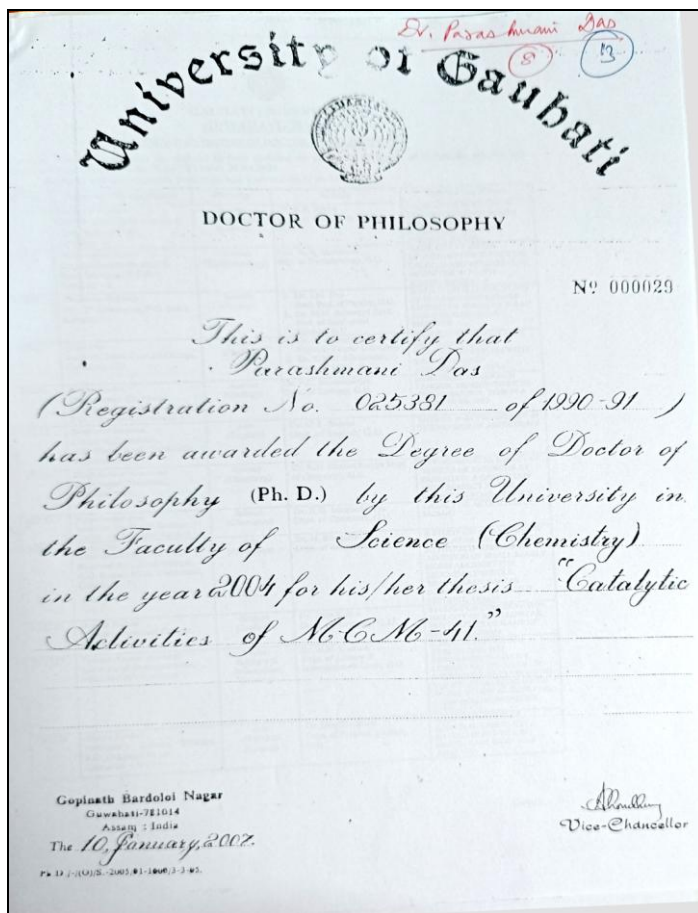 Dr. Parashmani Das
8 13
University of Gauhati
DOCTOR OF PHILOSOPHY
Nº 000029
This is to certify that
Parashmani Das
(Registration No. 025381 of 1990-91 )
has been awarded the Degree of Doctor of
Philosophy (Ph. D.) by this University in
the Faculty of Science (Chemistry)
in the year 2004 for his/her thesis "Catalytic
Activities of M-C-M-41."
Gopinath Bardoloi Nagar
Guwahati-781014
Assam : India
The 10, January, 2007.
Vice-Chancellor